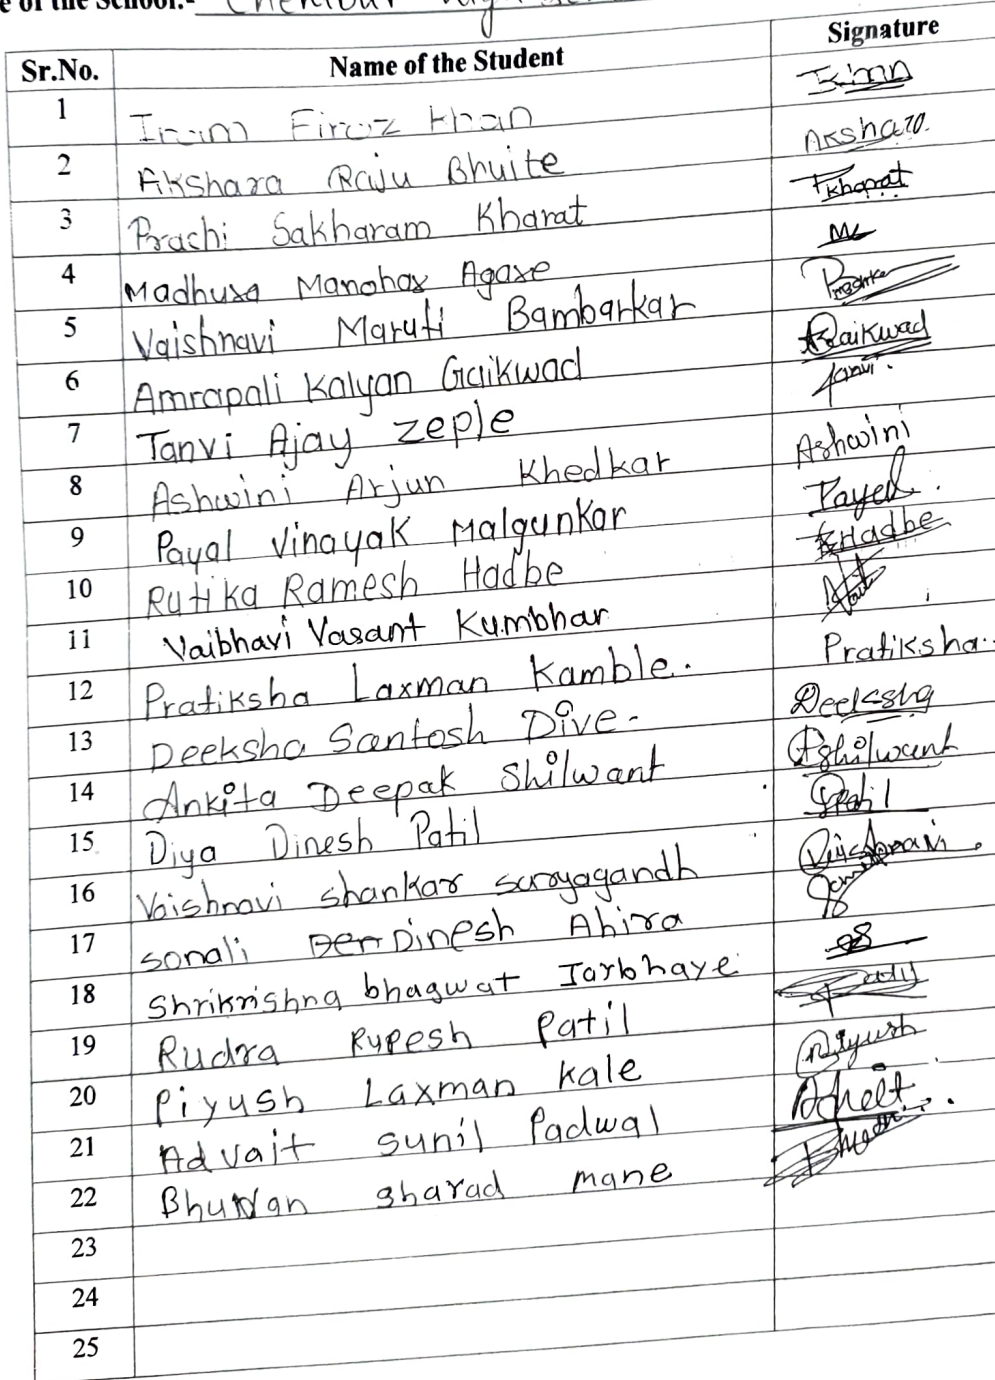 e of the School:-
Sr.No. Name of the Student Signature
1 Iram Firoz Khan
2 Akshara Raju Bhuite
3 Prachi Sakharam Kharat Kharat
4 Madhura Manohar Agare
5 Vaishnavi Maruti Bambarkar
6 Amrapali Kalyan Gaikwad Gaikwad
7 Tanvi Ajay zeple Tanvi.
8 Ashwini Arjun Khedkar Ashwini
9 Payal Vinayak Malgunkar Payal.
10 Rutika Ramesh Hadbe RHadbe
11 Vaibhavi Vasant Kumbhar
12 Pratiksha Laxman Kamble. Pratiksha.
13 Deeksha Santosh Dive- Deeksha
14 Ankita Deepak Shilwant AShilwant
15 Diya Dinesh Patil Patil
16 Vaishnavi shankar suryagandh Vaishnavi
17 sonali Dinesh Ahira
18 Shrikrishna bhagwat Tarbhaye
19 Rudra Rupesh Patil
20 Piyush Laxman kale Piyush
21 Advait sunil Padwal
22 Bhuvan sharad mane
23
24
25